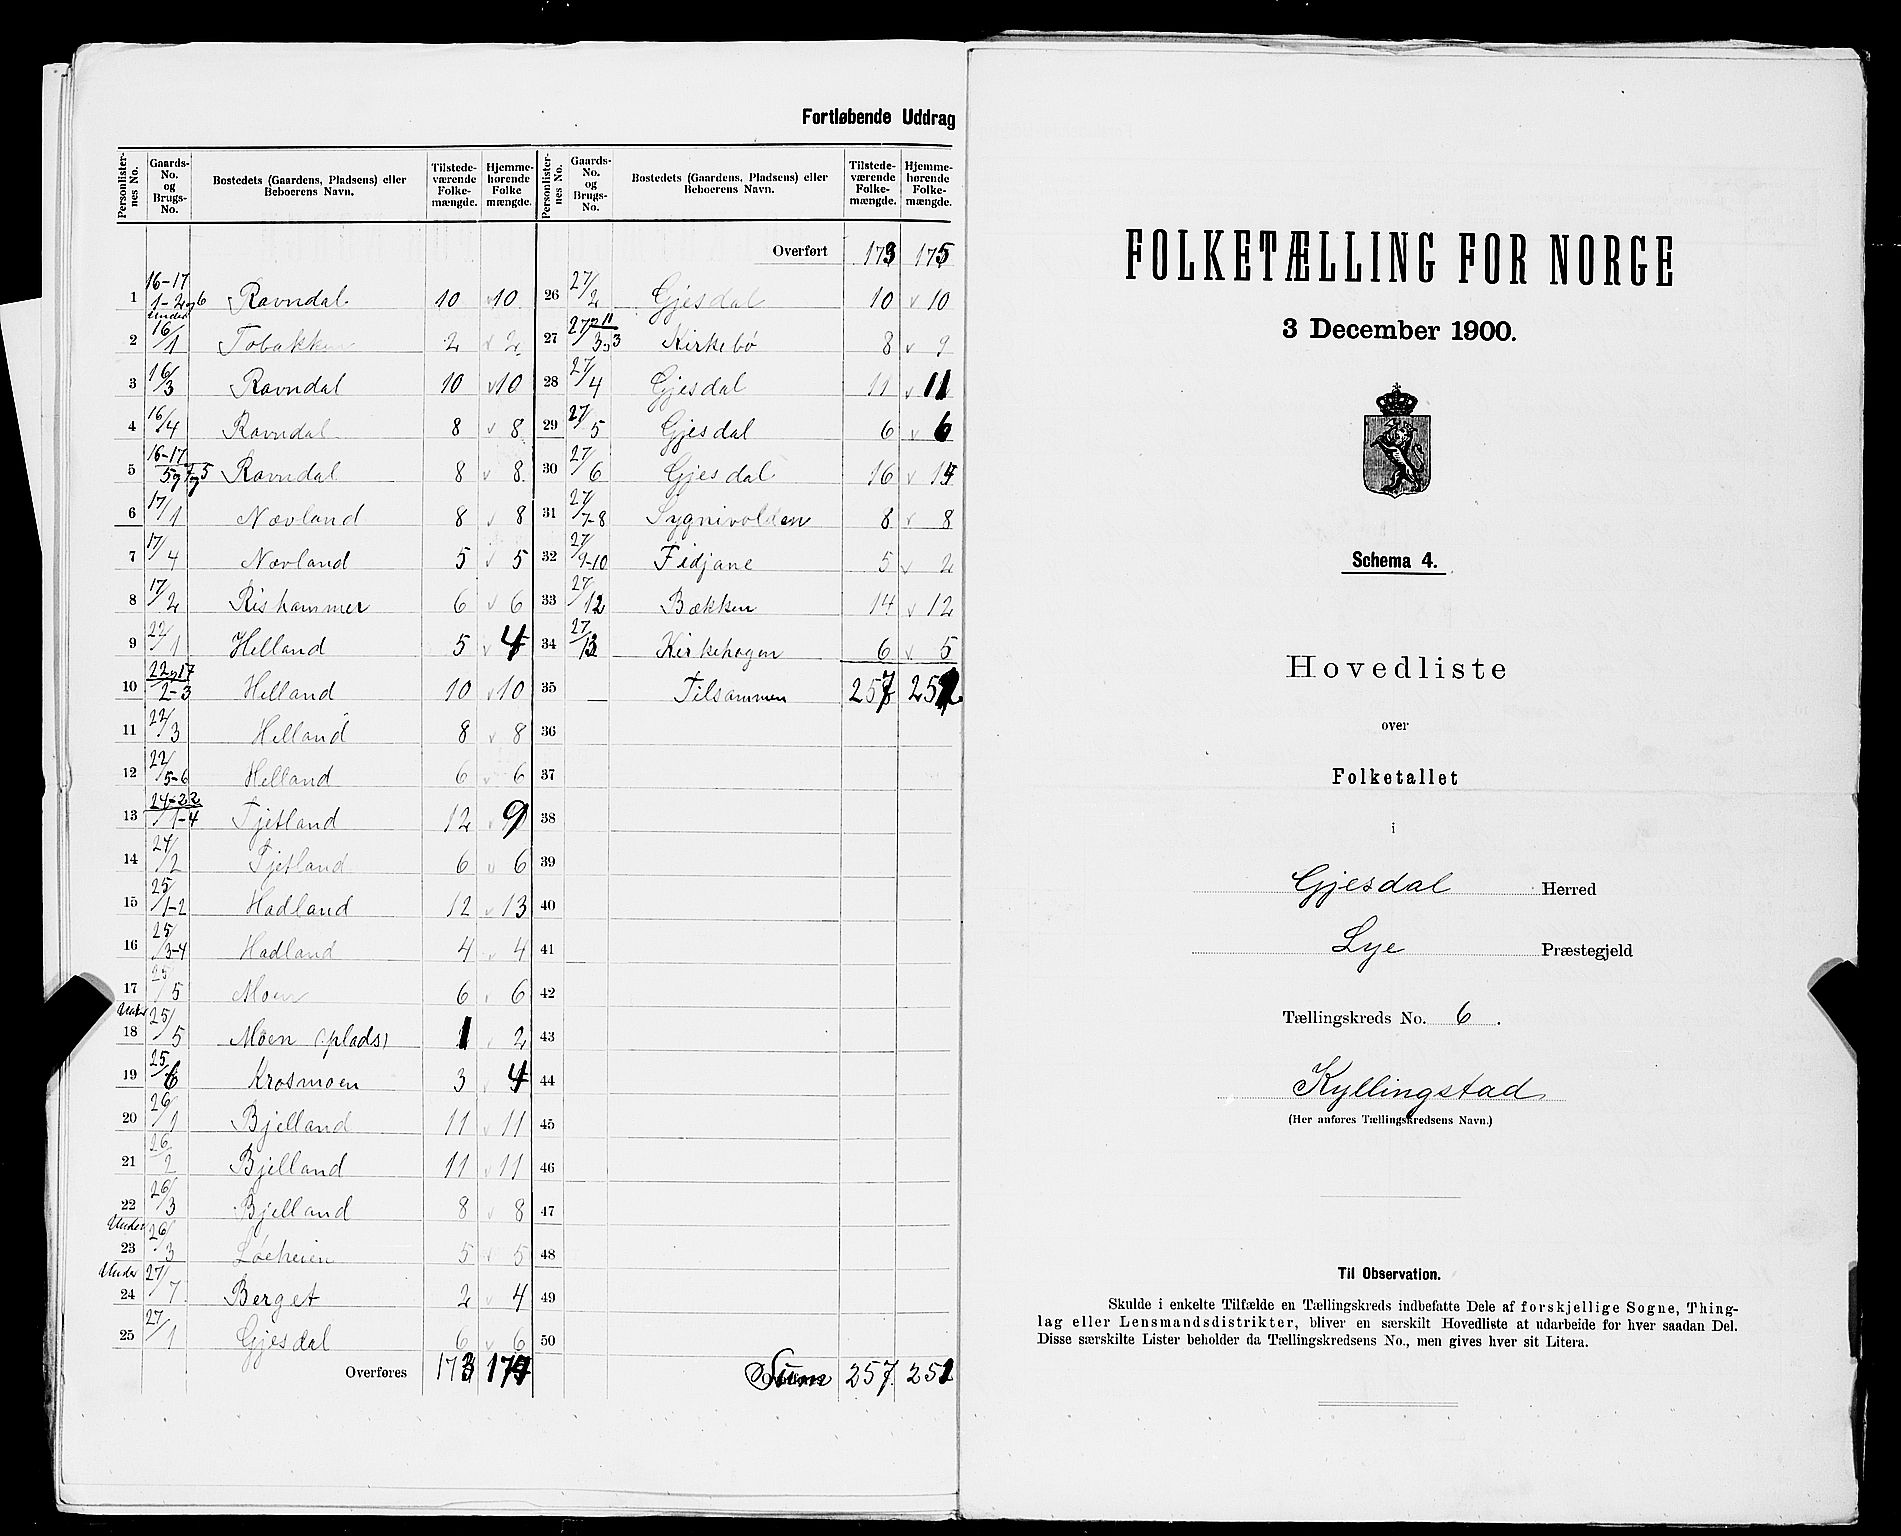 Fortløbende Uddrag
Personlister-nes No. Gaards-No. og Brugs-No. Bostedets (Gaardens, Pladsens) eller Beboerens Navn. Tilstede-værende Folke-mængde. Hjemme-hørende Folke mængde.
1 16-17 1-2 og 6 Ravndal 10 10
2 under 16/1 Tobakken 2 2
3 16/3 Ravndal 10 10
4 16/4 Ravndal 8 8
5 16-17 Ravndal 8 8
6 17/1 Nævland 8 8
7 17/4 Nævland 5 5
8 17/2 Rishammer 6 6
9 22/1 Helland 5 4
10 22 og 17/2-3 Helland 10 10
11 22/3 Helland 8 8
12 22/5-6 Helland 6 6
13 24-22/1-4 Tjetland 12 9
14 24/2 Tjetland 6 6
15 25/1-2 Hadland 12 13
16 25/3-4 Hadland 4 4
17 25/5 Moen 6 6
18 Under 25/5 Moen (plads) 1 2
19 25/6 Krosmoen 3 4
20 26/1 Bjelland 11 11
21 26/2 Bjelland 11 11
22 26/3 Bjelland 8 8
23 Under 26/3 Løeheien 5 5
24 Under 27/7 Berget 2 4
25 27/1 Gjesdal 6 6
Overføres 173 174
Personlister-nes No. Gaards-No. og Brugs-No. Bostedets (Gaardens, Pladsens) eller Beboerens Navn. Tilstede-værende Folke-mængde. Hjemme-hørende Folke-mængde.
Overført 173 175
26 27/2 Gjesdal 10 10
27 27 Kirkebø 8 9
28 27/4 Gjesdal 11 11
29 27/5 Gjesdal 6 6
30 27/6 Gjesdal 16 14
31 27/7-8 Sygnivolden 8 8
32 27/9-10 Fidjane 5 2
33 27/12 Bækken 14 12
34 27/13 Kirkehagen 6 5
35 Tilsammen 257 252
36
37
38
39
40
41
42
43
44
45
46
47
48
49
50
Sum 257 251
FOLKETÆLLING FOR NORGE
3 December 1900.
Schema 4.
Hovedliste
over
Folketallet
i
Gjesdal Herred
Lye Præstegjeld
Tællingskreds No. 6.
Kyllingstad
(Her anføres Tællingskredsens Navn.)
Til Observation.
Skulde i enkelte Tilfælde en Tællingskreds indbefatte Dele af forskjellige Sogne, Thing-
lag eller Lensmandsdistrikter, bliver en særskilt Hovedliste at udarbeide for hver saadan Del.
Disse særskilte Lister beholder da Tællingskredsens No., men gives hver sit Litera.